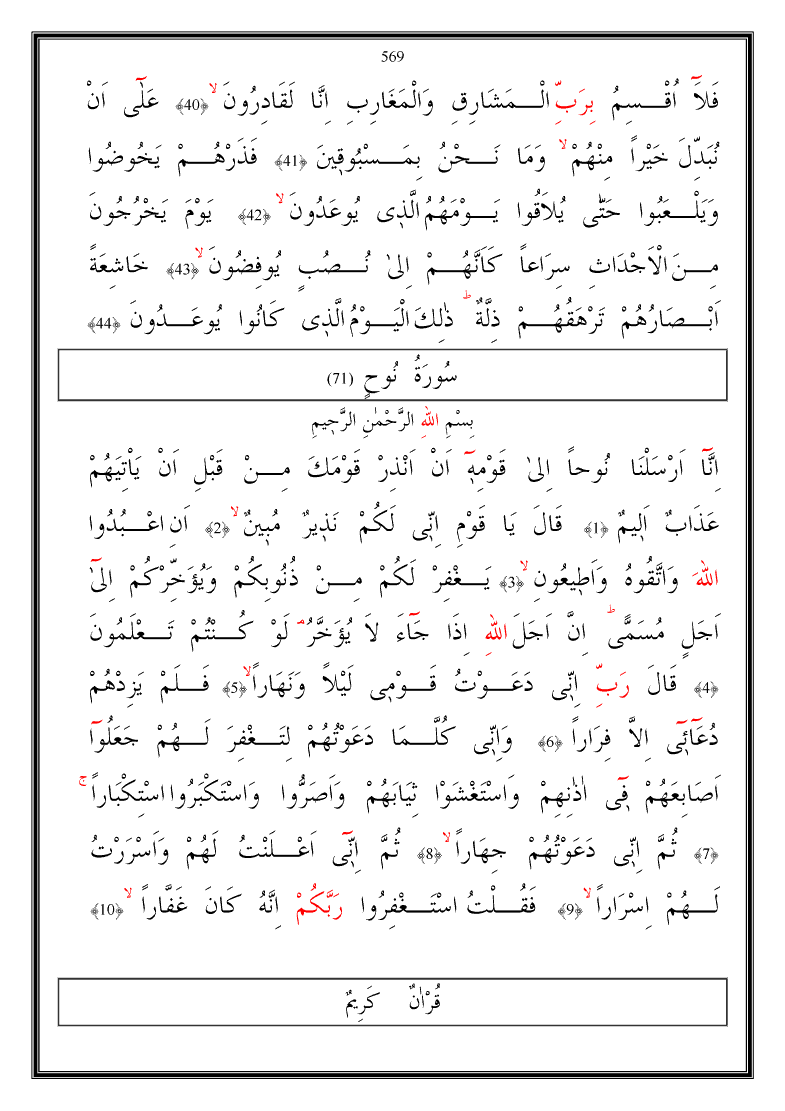 569
فَلَآ اُقْسِمُ بِرَبِّ الْمَشَارِقِ وَالْمَغَارِبِ اِنَّا لَقَادِرُونَۙ ﴿40﴾ عَلٰٓى اَنْ
نُبَدِّلَ خَيْراً مِنْهُمْۙ وَمَا نَحْنُ بِمَسْبُوق۪ينَ ﴿41﴾ فَذَرْهُمْ يَخُوضُوا
وَيَلْعَبُوا حَتّٰى يُلَاقُوا يَوْمَهُمُ الَّذ۪ى يُوعَدُونَۙ ﴿42﴾ يَوْمَ يَخْرُجُونَ
مِنَ الْاَجْدَاثِ سِرَاعاً كَاَنَّهُمْ اِلٰى نُصُبٍ يُوفِضُونَۙ ﴿43﴾ خَاشِعَةً
اَبْصَارُهُمْ تَرْهَقُهُمْ ذِلَّةٌۜ ذٰلِكَ الْيَوْمُ الَّذ۪ى كَانُوا يُوعَدُونَ ﴿44﴾
سُورَةُ نُوحٍ (71)
بِسْمِ اللهِ الرَّحْمٰنِ الرَّح۪يمِ
اِنَّٓا اَرْسَلْنَا نُوحاً اِلٰى قَوْمِه۪ٓ اَنْ اَنْذِرْ قَوْمَكَ مِنْ قَبْلِ اَنْ يَاْتِيَهُمْ
عَذَابٌ اَل۪يمٌ ﴿1﴾ قَالَ يَا قَوْمِ اِنّ۪ى لَكُمْ نَذ۪يرٌ مُب۪ينٌۙ ﴿2﴾ اَنِ اعْبُدُوا
اللهَ وَاتَّقُوهُ وَاَط۪يعُونِۙ ﴿3﴾ يَغْفِرْ لَكُمْ مِنْ ذُنُوبِكُمْ وَيُؤَخِّرْكُمْ اِلٰٓى
اَجَلٍ مُسَمًّىۜ اِنَّ اَجَلَ اللهِ اِذَا جَٓاءَ لَا يُؤَخَّرُۢ لَوْ كُنْتُمْ تَعْلَمُونَ
﴿4﴾ قَالَ رَبِّ اِنّ۪ى دَعَوْتُ قَوْم۪ى لَيْلاً وَنَهَاراًۙ ﴿5﴾ فَلَمْ يَزِدْهُمْ
دُعَٓائ۪ٓى اِلَّا فِرَاراً ﴿6﴾ وَاِنّ۪ى كُلَّمَا دَعَوْتُهُمْ لِتَغْفِرَ لَهُمْ جَعَلُٓوا
اَصَابِعَهُمْ ف۪ٓى اٰذَانِهِمْ وَاسْتَغْشَوْا ثِيَابَهُمْ وَاَصَرُّوا وَاسْتَكْبَرُوا اسْتِكْبَاراًۚ
﴿7﴾ ثُمَّ اِنّ۪ى دَعَوْتُهُمْ جِهَاراًۙ ﴿8﴾ ثُمَّ اِنّ۪ٓى اَعْلَنْتُ لَهُمْ وَاَسْرَرْتُ
لَهُمْ اِسْرَاراًۙ ﴿9﴾ فَقُلْتُ اسْتَغْفِرُوا رَبَّكُمْ اِنَّهُ كَانَ غَفَّاراًۙ ﴿10﴾
قُرْاٰنٌ كَرِيمٌ